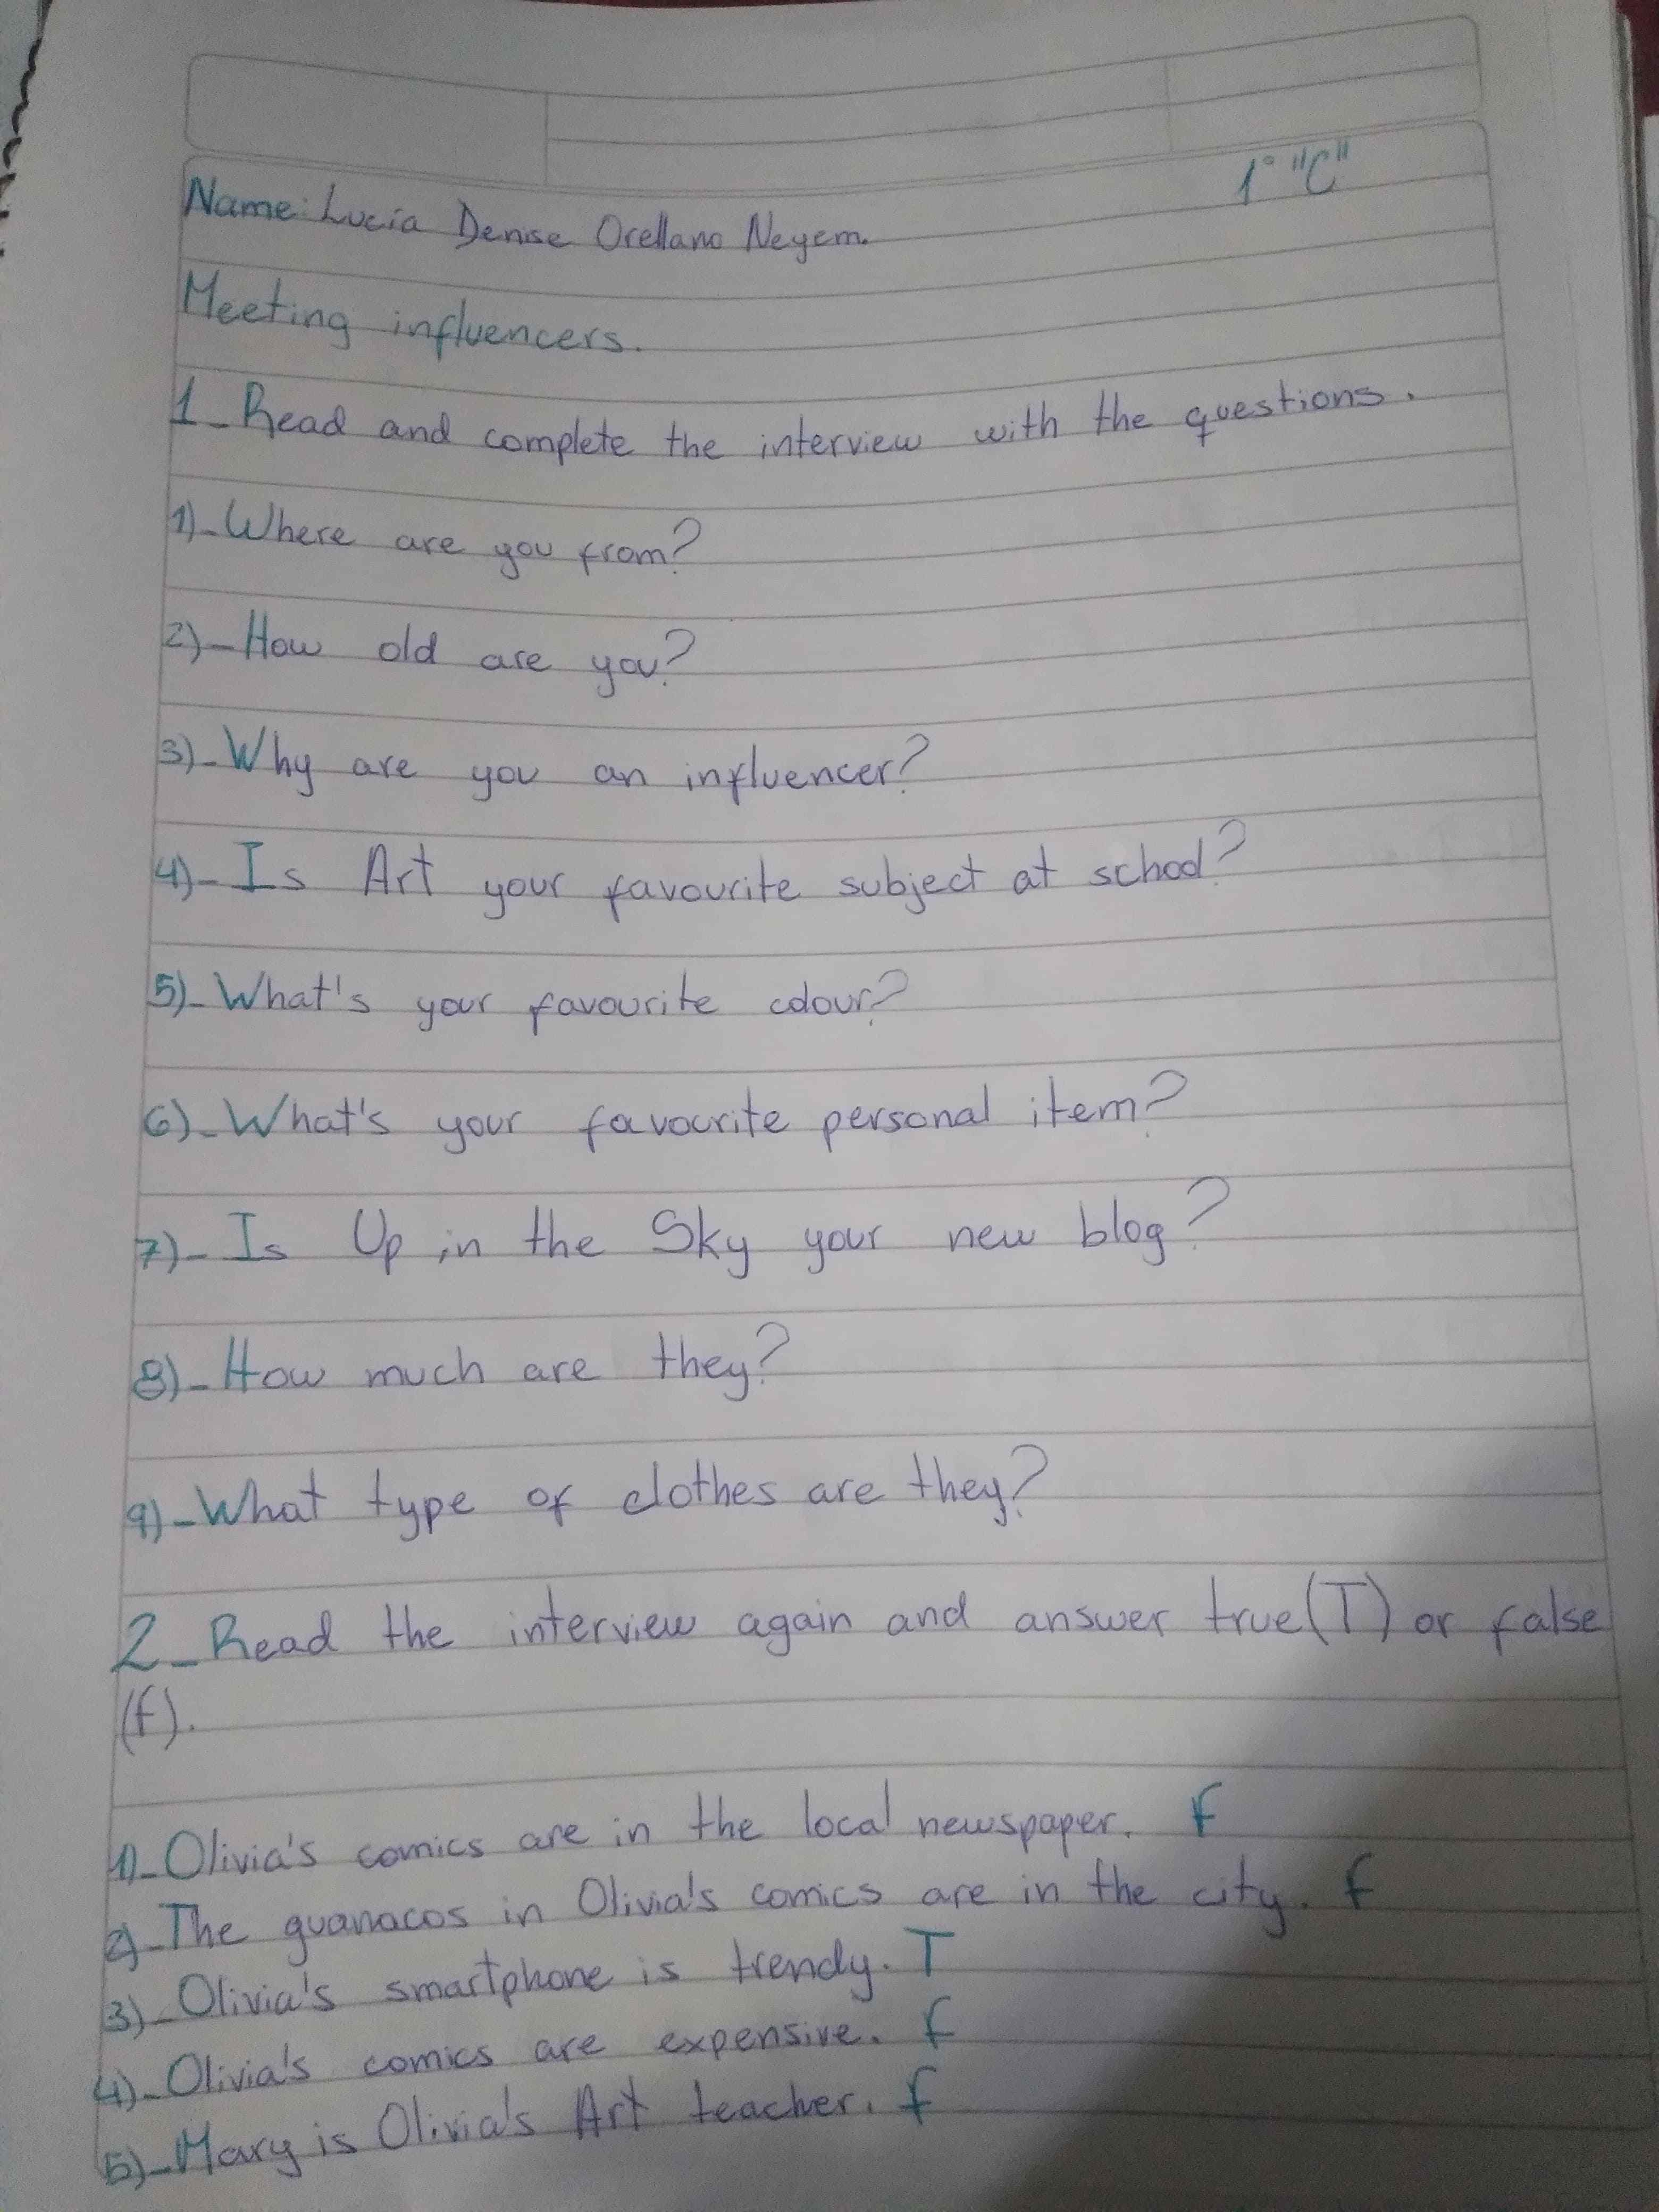 1° "C"
Name: Lucía Denise Orellano Neyem.
Meeting influencers.
1_Read and complete the interview with the questions.
1)_Where are you from?
2)_How old are you?
3)_Why are you an influencer?
4)_Is Art your favourite subject at school?
5)_What's your favourite colour?
6)_What's your favourite personal item?
7)_Is Up in the Sky your new blog?
8)_How much are they?
9)_What type of clothes are they?
2_Read the interview again and answer true(T) or false
(f).
1)_Olivia's comics are in the local newspaper. f
2)_The guanacos in Olivia's comics are in the city. f
3)_Olivia's smartphone is trendy. T
4)_Olivia's comics are expensive. f
5)_Mary is Olivia's Art teacher. f